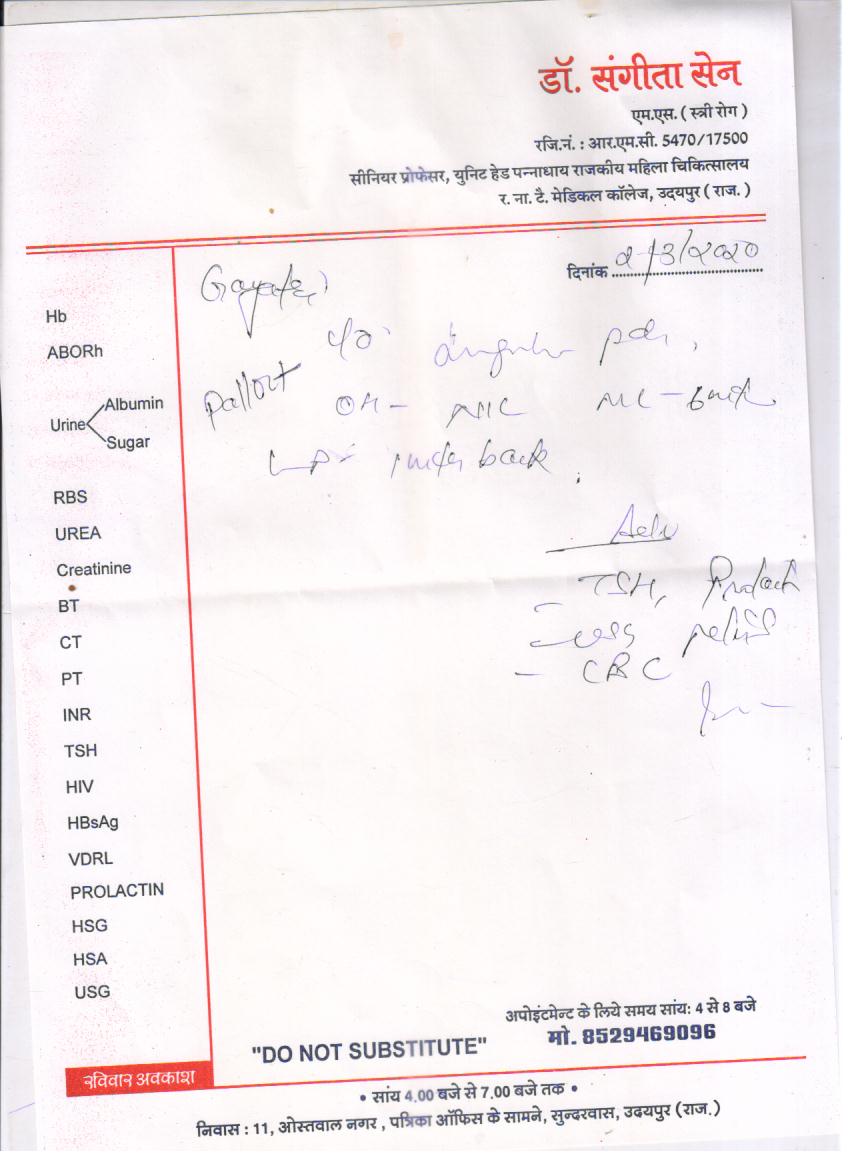 डॉ. संगीता सेन
एम.एस. ( स्त्री रोग )
रजि.नं. : आर.एम.सी. 5470/17500
सीनियर प्रोफेसर, युनिट हेड पन्नाधाय राजकीय महिला चिकित्सालय
र. ना. टै. मेडिकल कॉलेज, उदयपुर ( राज. )
दिनांक
Hb
ABORh
Urine
Albumin
Sugar
RBS
UREA
Creatinine
BT
CT
PT
INR
TSH
HIV
HBsAg
VDRL
PROLACTIN
HSG
HSA
USG
c/o
pallor+
back
back
Adv
TSH,
- CBC
अपोइंटमेन्ट के लिये समय सांय: 4 से 8 बजे
मो. 8529469096
"DO NOT SUBSTITUTE"
रविवार अवकाश
• सांय 4.00 बजे से 7.00 बजे तक •
निवास : 11, ओस्तवाल नगर , पत्रिका ऑफिस के सामने, सुन्दरवास, उदयपुर (राज.)